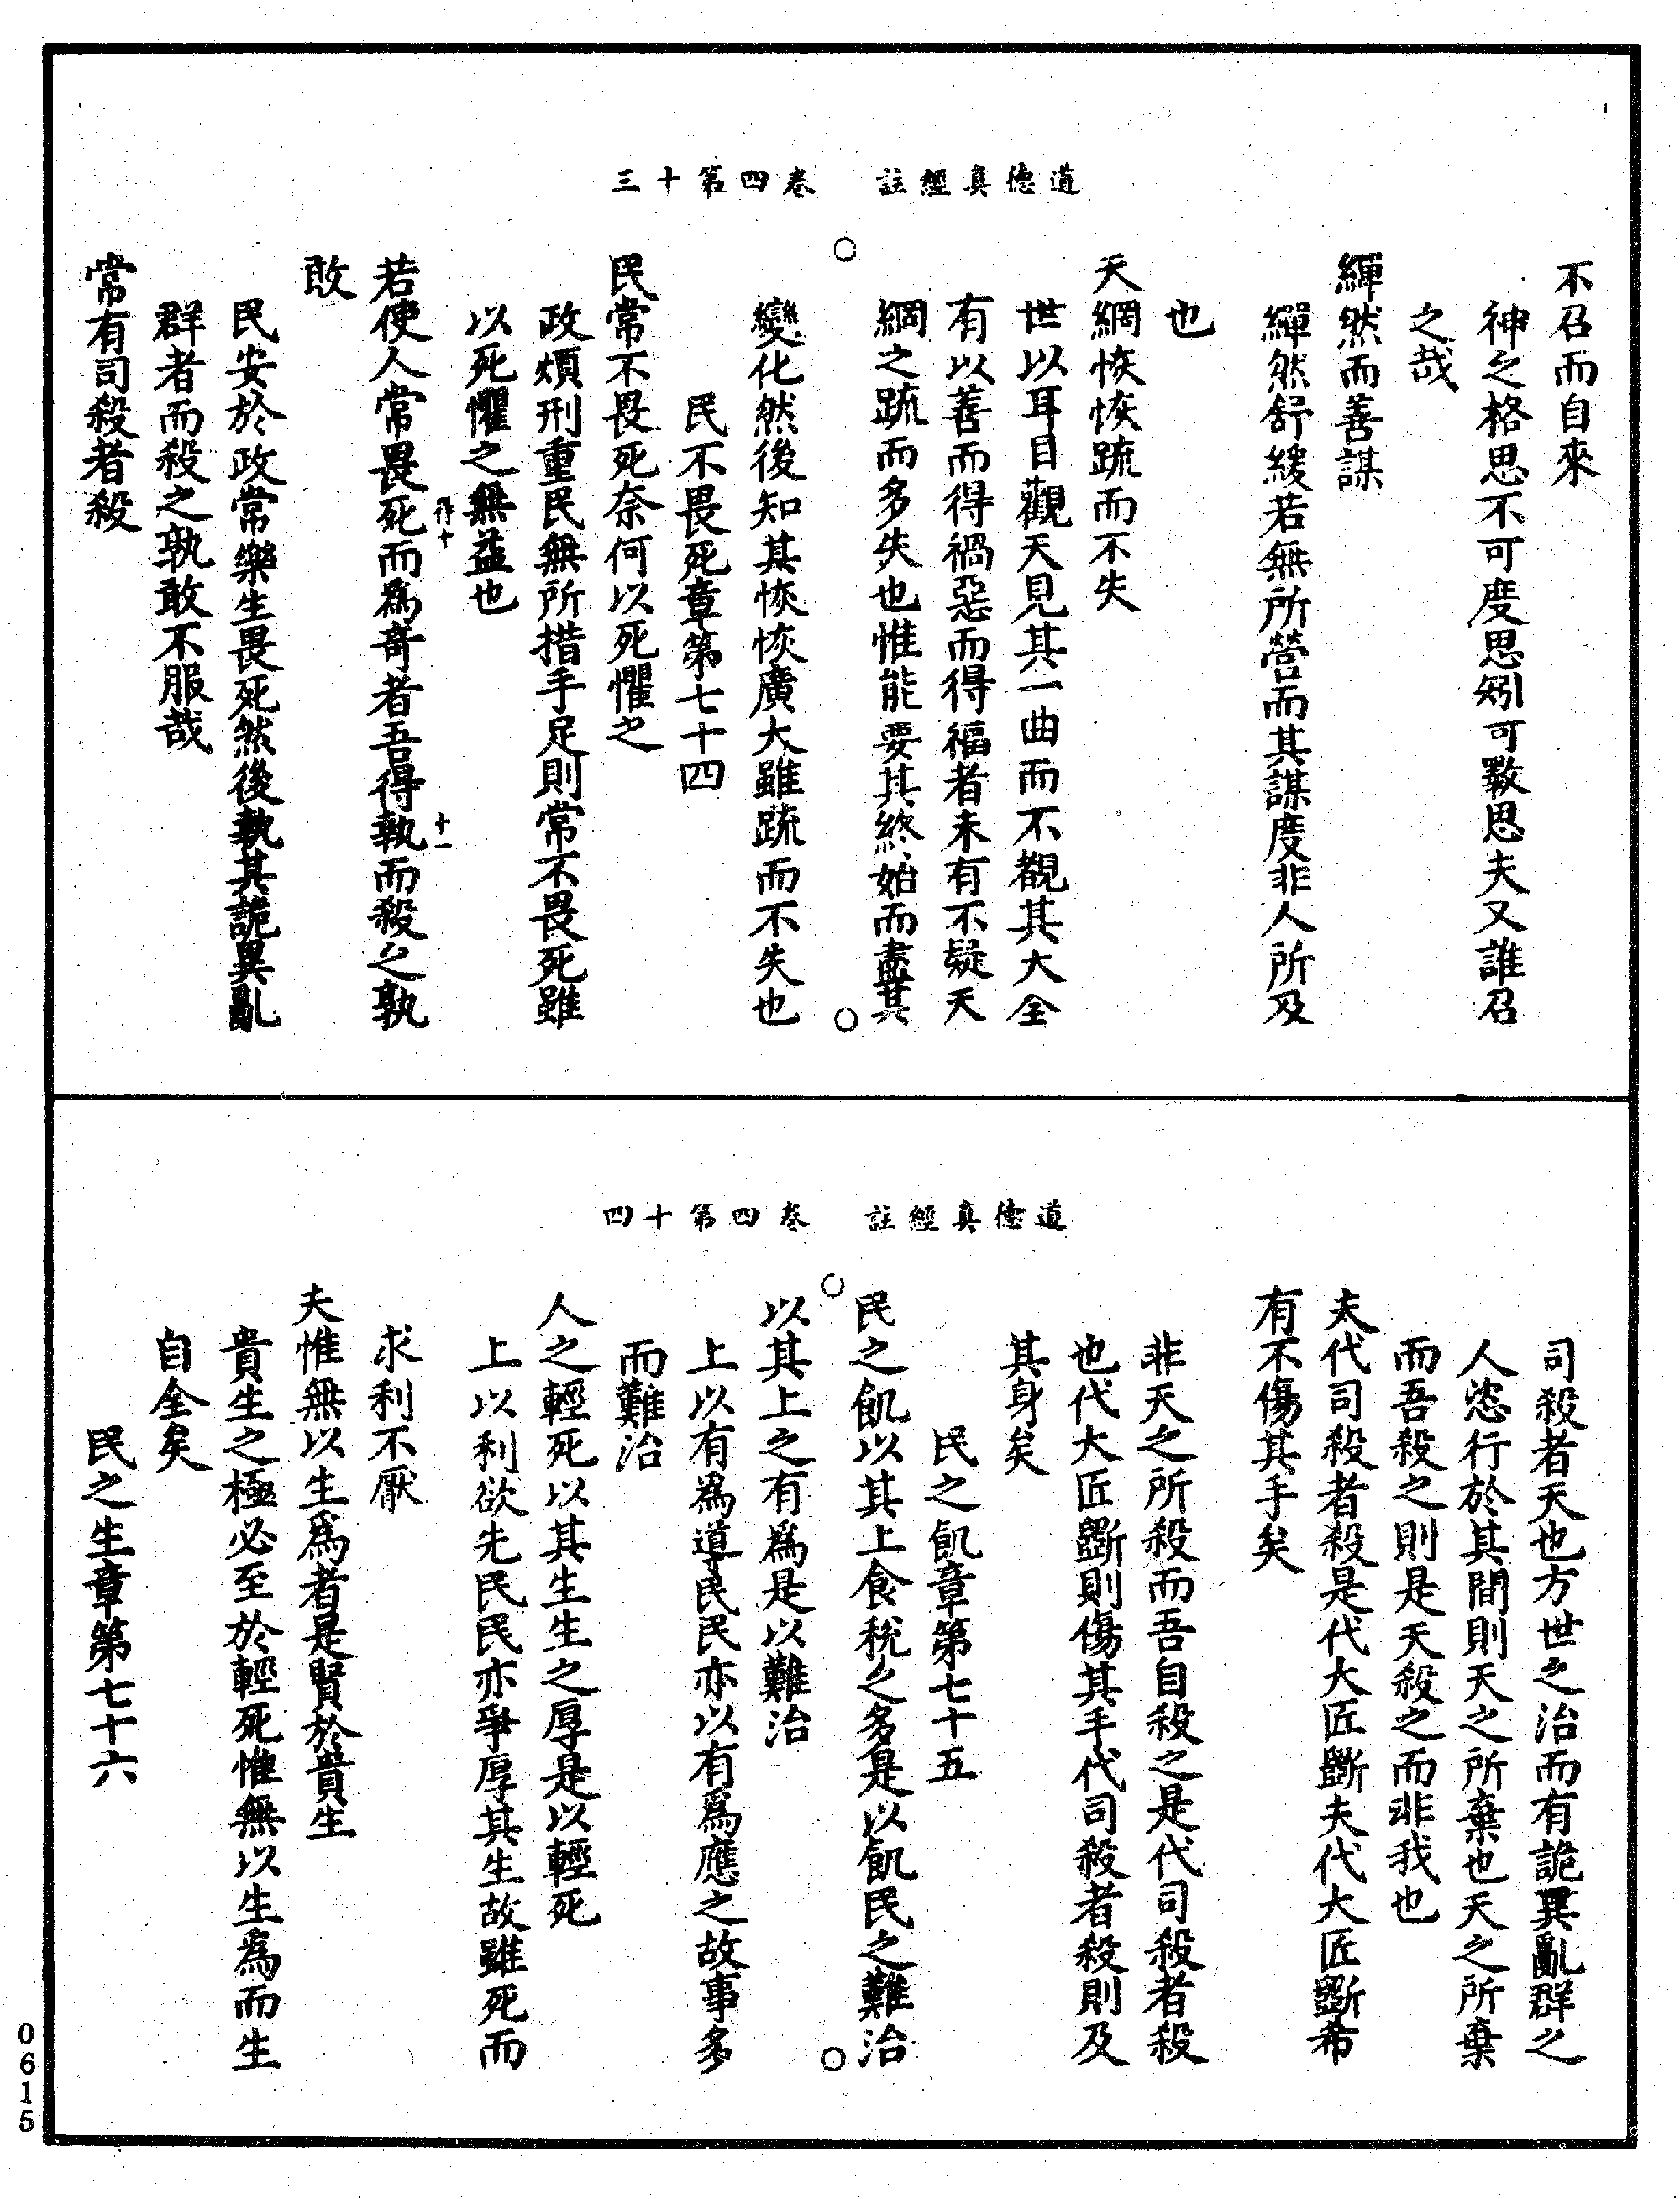 道德真經註　卷四第十三
不召而自來
神之格思不可度思矧可斁思夫又誰召
之哉
繟然而善謀
繟然舒緩若無所營而其謀度非人所及
也
天網恢恢疏而不失
世以耳目觀天見其一曲而不覩其大全
有以善而得禍惡而得福者未有不疑天
網之疏而多失也惟能要其終始而盡其
變化然後知其恢恢廣大雖疏而不失也
民不畏死章第七十四
民常不畏死奈何以死懼之
政煩刑重民無所措手足則常不畏死雖
以死懼之無益也
若使人常畏死而為奇者吾得執而殺之孰
敢
民安於政常樂生畏死然後執其詭異亂
群者而殺之孰敢不服哉
常有司殺者殺
道德真經註　卷四第十四
司殺者天也方世之治而有詭異亂群之
人恣行於其間則天之所棄也天之所棄
而吾殺之則是天殺之而非我也
夫代司殺者殺是代大匠斲夫代大匠斲希
有不傷其手矣
非天之所殺而吾自殺之是代司殺者殺
也代大匠斲則傷其手代司殺者殺則及
其身矣
民之飢章第七十五
民之飢以其上食稅之多是以飢民之難治
以其上之有為是以難治
上以有為導民民亦以有為應之故事多
而難治
人之輕死以其生生之厚是以輕死
上以利欲先民民亦爭厚其生故雖死而
求利不厭
夫惟無以生為者是賢於貴生
貴生之極必至於輕死惟無以生為而生
自全矣
民之生章第七十六
0615